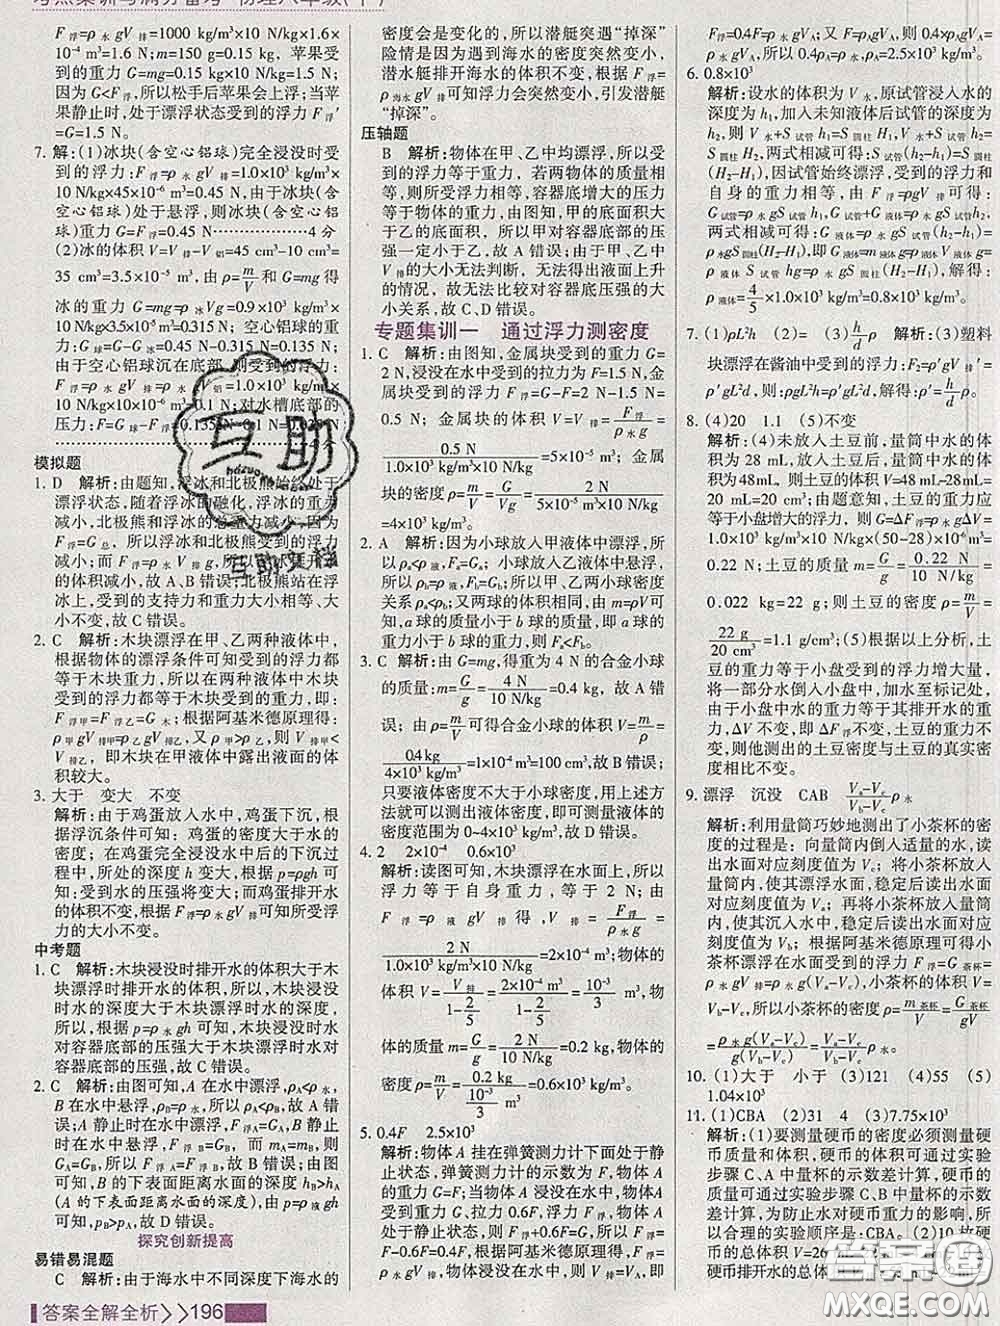 考点集训与满分备考 物理八年级(下)
F浮=ρ水gV排=1000 kg/m³×10 N/kg×1.6×
10⁻⁴ m³=1.6 N;m=150 g=0.15 kg,苹果受
到的重力 G=mg=0.15 kg×10 N/kg=1.5 N;
因为 G<F浮,所以松手后苹果会上浮;当苹
果静止时,处于漂浮状态受到的浮力 F浮′
=G=1.5 N。
7. 解:(1)冰块(含空心铝球)完全浸没时受
到的浮力 F浮=ρ水gV排=1.0×10³ kg/m³×10
N/kg×45×10⁻⁶ m³=0.45 N,由于冰块(含
空心铝球)处于悬浮,则冰块(含空心铝球)
的重力 G=F浮=0.45 N……………4分
(2)冰的体积 V=V排-V铝=45 cm³-10 cm³=
35 cm³=3.5×10⁻⁵ m³,由 ρ=m/V 和 G=mg 得
冰的重力 G=mg=ρVg=0.9×10³ kg/m³×10
N/kg×3.5×10⁻⁵ m³=0.315 N;空心铝球的重
力:G球=G-G冰=0.45 N-0.315 N=0.135 N;
由于空心铝球沉在底部,则空心铝球受到
的浮力 F浮=ρ水gV铝=1.0×10³ kg/m³×10
N/kg×10×10⁻⁶ m³=0.1 N;对水槽底部的
压力:F=G球-F浮=0.135 N-0.1 N=0.035 N
模拟题
1. D 解析:由题知,浮冰和北极熊始终处于
漂浮状态,随着浮冰的融化,浮冰的重力
减小,北极熊和浮冰的总重力减小,因为
F浮=G总,所以浮冰和北极熊受到的浮力
减小;而F浮=ρ水gV排,所以浮冰浸没水中
的体积减小,故A、B错误;北极熊站在浮
冰上,受到的支持力和重力大小相等、大
小不变,故C错误。
2. C 解析:木块漂浮在甲、乙两种液体中,
根据物体的漂浮条件可知受到的浮力都
等于木块重力,所以在两种液体中木块
受到的浮力都等于木块受到的重力,即:
F浮甲=F浮乙=G木;根据阿基米德原理得:
ρ甲gV排甲=ρ乙gV排乙,又 ρ甲>ρ乙,所以 V排甲<
V排乙,即木块在甲液体中露出液面的体
积较大。
3. 大于 变大 不变
解析:由于鸡蛋放入水中,鸡蛋下沉,根
据浮沉条件可知:鸡蛋的密度大于水的
密度;在鸡蛋完全浸没水中后的下沉过
程中,鸡蛋所处的深度变大,根据 p=ρgh 可
知:受到水的压强将变大;而鸡蛋排开水
的体积不变,根据 F浮=ρ水gV排可知所受浮力
的大小不变。
中考题
1. C 解析:木块浸没时排开水的体积大于木
块漂浮时排开水的体积,所以,木块浸没
时水的深度大于木块漂浮时水的深度,
所以,根据 p=ρ水gh 可知,木块浸没时水
对容器底部的压强大于木块漂浮时水对
容器底部的压强,故C错误。
2. C 解析:由图可知,A在水中漂浮,ρA<ρ水,
B在水中悬浮,ρB=ρ水,所以 ρA<ρB,故A错
误;A静止时在水中漂浮,F浮=GA,B静止
时在水中悬浮,F浮=GB,而 mA=mB,则
GA=GB,所以F浮A=F浮B,故B错误;由图
可知,B的下表面距离水面的深度 hB>hA
(A的下表面距离水面的深度),由 p=ρ水gh
可知,pB>pA,故D错误。
探究创新提高
易错易混题
C 解析:由于海水中不同深度下海水的
密度会是变化的,所以潜艇突遇“掉深”
险情是因为遇到海水的密度突然变小,
潜水艇排开海水的体积不变,根据 F浮=
ρ海水gV排可知浮力会突然变小,引发潜艇
“掉深”。
压轴题
B 解析:物体在甲、乙中均漂浮,所以所
受浮力等于重力,若两物体的质量相
等,则所受浮力相等,容器底增大的压力
等于物体的重力,由图知,甲的底面积大
于乙的底面积,所以甲对容器底部的压
强一定小于乙,故A错误;由于甲、乙中
V排的大小无法判断,无法得出液面上升
的情况,故无法比较对容器底压强的大
小关系,故C、D错误。
专题集训一 通过浮力测密度
1. C 解析:由图知,金属块受到的重力 G=
2 N,浸没在水中受到的拉力为 F=1.5 N,
金属块的浮力为 F浮=G-F=2 N-1.5 N=
0.5 N;金属块的体积 V=V排=F浮/ρ水g=
0.5 N/(1.0×10³ kg/m³×10 N/kg)=5×10⁻⁵ m³;金属
块的密度 ρ=m/V=G/Vg=2 N/(5×10⁻⁵ m³×10 N/kg)
=4×10³ kg/m³。
2. A 解析:因为小球放入甲液体中漂浮,所
以 ρa<ρ液,Fa=Ga;小球放入乙液体中悬浮,
所以 ρb=ρ液,Fb=Gb;则甲、乙两小球密度
关系 ρa<ρb;又两球的体积相同,由 m=ρV可
知,a球的质量小于 b球的质量,即 a球的
重力小于 b球的重力,则 Fa<Fb。
3. C 解析:由 G=mg,得重为 4 N的合金小球
的质量:m=G/g=4 N/(10 N/kg)=0.4 kg,故A错
误;由 ρ=m/V可得合金小球的体积 V=m/ρ=
0.4 kg/(4×10³ kg/m³)=1×10⁻⁴ m³,故B错误;
只要液体密度不大于小球密度,用上述方法
就可以测出液体密度,即可测量液体的
密度范围为 0~4×10³ kg/m³,故D错误。
4. 2 2×10⁻⁴ 0.6×10³
解析:读图可知,木块漂浮在水面上,所
以浮力等于自身重力,等于 2 N;由
F浮=ρ液gV排得,V排=F浮/ρ水g=
2 N/(1.0×10³ kg/m³×10 N/kg)=2×10⁻⁴ m³;物体的
体积 V=V排/(1-2/5)=2×10⁻⁴ m³/(1-2/5)=10⁻³/3 m³;物
体的质量 m=G/g=2 N/(10 N/kg)=0.2 kg,物体的
密度 ρ=m/V=0.2 kg/(10⁻³/3 m³)=0.6×10³ kg/m³。
5. 0.4F 2.5×10³
解析:物体A挂在弹簧测力计下面处于静
止状态,弹簧测力计的示数为 F,则物体
A的重力 G=F;当物体A浸没在水中,测
力计示数为 0.6F,对A受力分析,受到重
力G,向上拉力 0.6F,浮力 F浮,物体A此
时处于静止状态,则 F浮+0.6F=F,所以 F浮=
F-0.6F=0.4F;由于浸没,所以 V排=VA,由
F浮=0.4F=ρ水gVA,又 F=ρAgVA,则 0.4×ρA
gVA=ρ水gVA,所以 0.4ρA=ρ水,ρA=2.5×10³ kg/m³。
6. 0.8×10³
解析:设水的体积为 V水,原试管浸入水的
深度为 h1,加入未知液体后试管的深度为
h2,则 V水+S试管h1=S圆柱H1,V水+S试管h2=
S圆柱H2,两式相减可得:S试管(h2-h1)=S圆柱
(H2-H1),因试管始终漂浮,受到的浮力和
自身的重力相等,由 F浮=ρgV排可得:
G试管=ρ水gS试管h1,G试管+G液体=ρ水gS试管h2,
两式相减可得:G液体=ρ水gS试管(h2-h1)=
ρ水gS圆柱(H2-H1),即 G液体=m液体g=ρ液体V液体g=
ρ液体S试管hg=ρ水gS圆柱(H2-H1),解得:
ρ液体=4/5×1.0×10³ kg/m³=0.8×10³ kg/m³。
7. (1)ρL²h (2)= (3)h/d ρ 解析:(3)塑料
块漂浮在酱油中受到的浮力:F浮=ρ′gV排
=ρ′gL²d,则:ρgL²h=ρ′gL²d,解得:ρ′=h/d ρ。
8. (4)20 1.1 (5)不变
解析:(4)未放入土豆前,量筒中水的体
积为 28 mL,放入土豆后,量筒中水的体
积为48 mL,则土豆的体积V=48 mL-28 mL=
20 mL=20 cm³;由题意知,土豆的重力应
等于小盘增大的浮力,G=ΔF浮=ρ水gΔV=
1.0×10³ kg/m³×10 N/kg×(50-28)×10⁻⁶ m³=
0.22 N;土豆的质量 m=G/g=0.22 N/(10 N/kg)=
0.022 kg=22 g;则土豆的密度 ρ=m/V=
22 g/20 cm³=1.1 g/cm³;(5)根据以上分析,土
豆的重力等于小盘受到的浮力增大量,
将一部分水倒入小盘中,加水至标记处,
由于小盘中水的重力等于其排开水的
重力,ΔV不变,即ΔF浮不变,土豆的重力不变,
则他测出的土豆密度与土豆的真实密
度相比不变。
9. 漂浮 沉没 CAB (Va-Vc)/(Vb-Vc) ρ水
解析:利用量筒巧妙地测出了小茶杯的密
度的过程是:向量筒内倒入适量的水,读
出水面对应刻度值为Vc;将小茶杯放入量
筒,使其漂浮水面,稳定后读出水面对应
刻度值为Va;再将小茶杯放入量筒,使
其沉入水中,稳定后读出水面对应刻度
值为Vb;根据阿基米德原理可得小茶杯
漂浮在水面受到的浮力 F浮=G茶杯=
ρ水gV排=ρ水g(Va-Vc),小茶杯的体积V=
Vb-Vc,所以小茶杯的密度 ρ=m茶杯/V=G茶杯/gV
=ρ水g(Va-Vc)/g(Vb-Vc)=(Va-Vc)/(Vb-Vc) ρ水。
10. (1)大于 小于 (3)121 (4)55 (5)
1.04×10³
11. (1)CBA (2)31 4 (3)7.75×10³
解析:(1)要测量硬币的密度必须测量硬
币质量和体积,硬币的质量可通过实验
步骤C、A中量杯的示数差计算,硬币的
质量可通过实验步骤C、B中量杯的示数
差计算,为防止水对硬币重力的影响,所
以合理的实验顺序是:CBA。(2)10枚硬
币的总体积 V=26
答案全解全析>>196
互助
hdzuoye
互助文档
答案圈
MXQE.COM